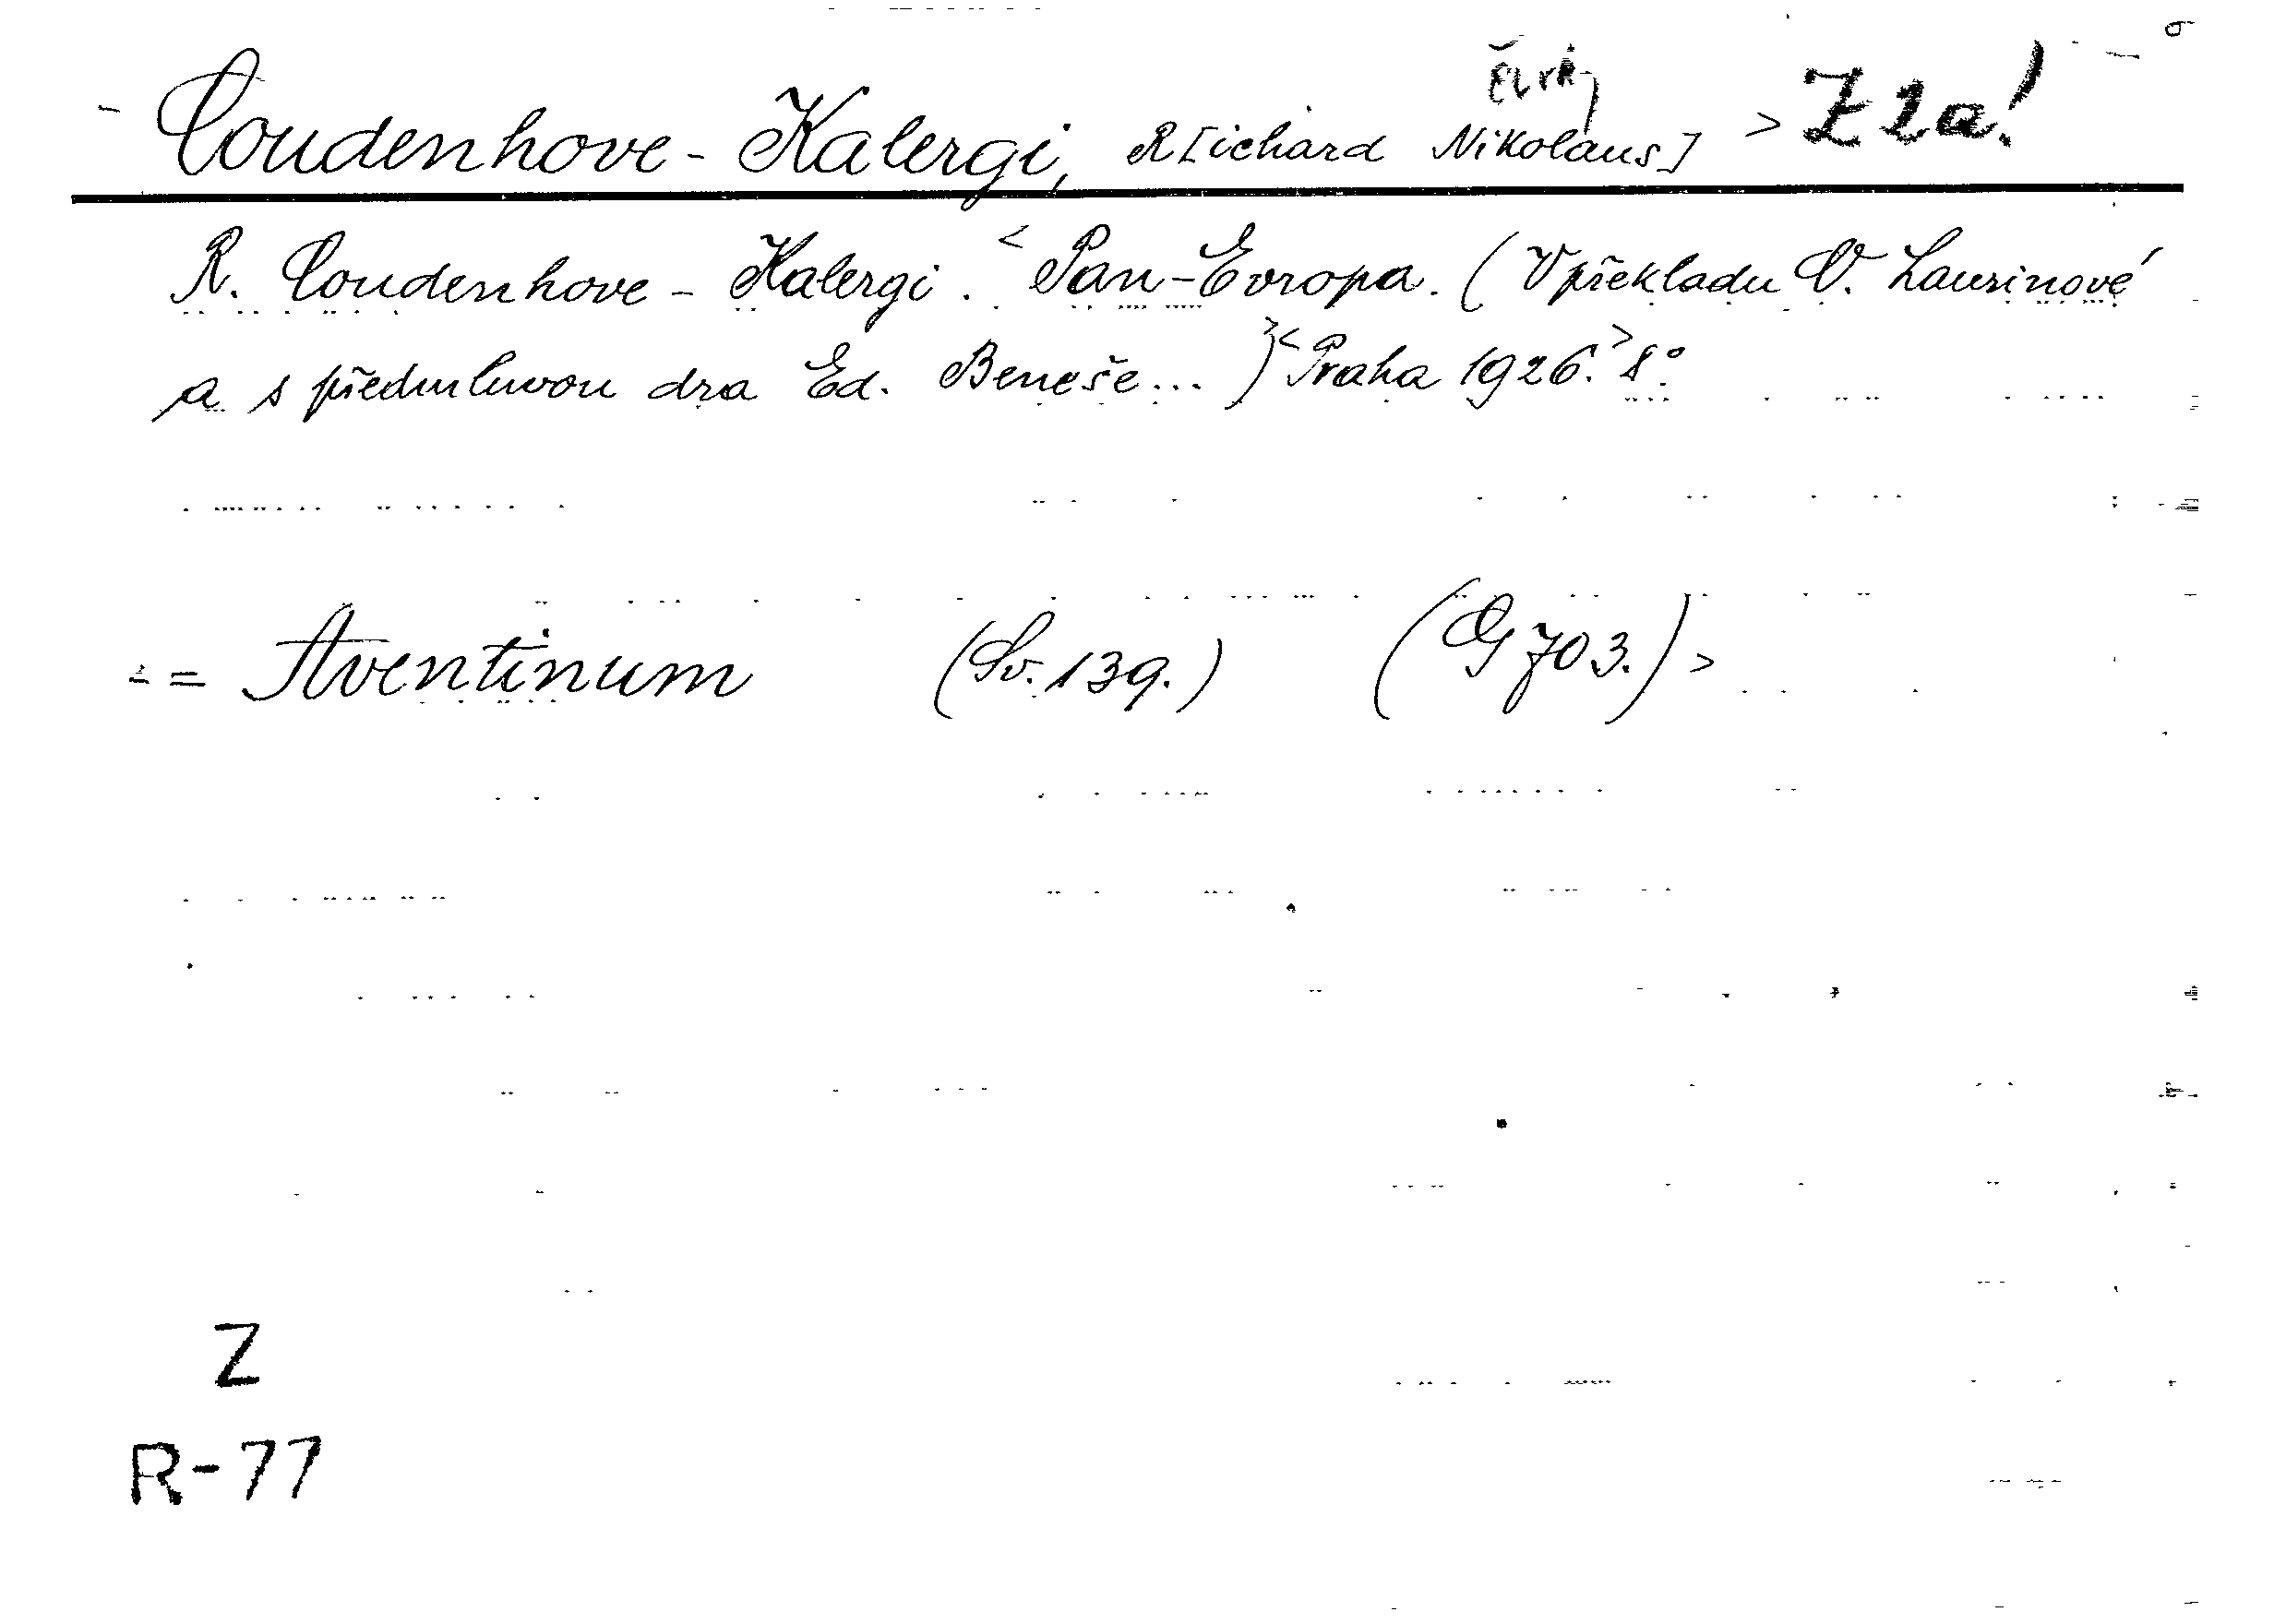 Coudenhove-Kalergi, R[ichard Nikolaus] > Z 1a!
R. Coudenhove-Kalergi. < Pan-Evropa. (V překladu V. Laurinové
a s předmluvou dra Ed. Beneše...) >< Praha 1926. > 8°.
= Aventinum (Sv. 139.) (G 703.) >
Z
R-77